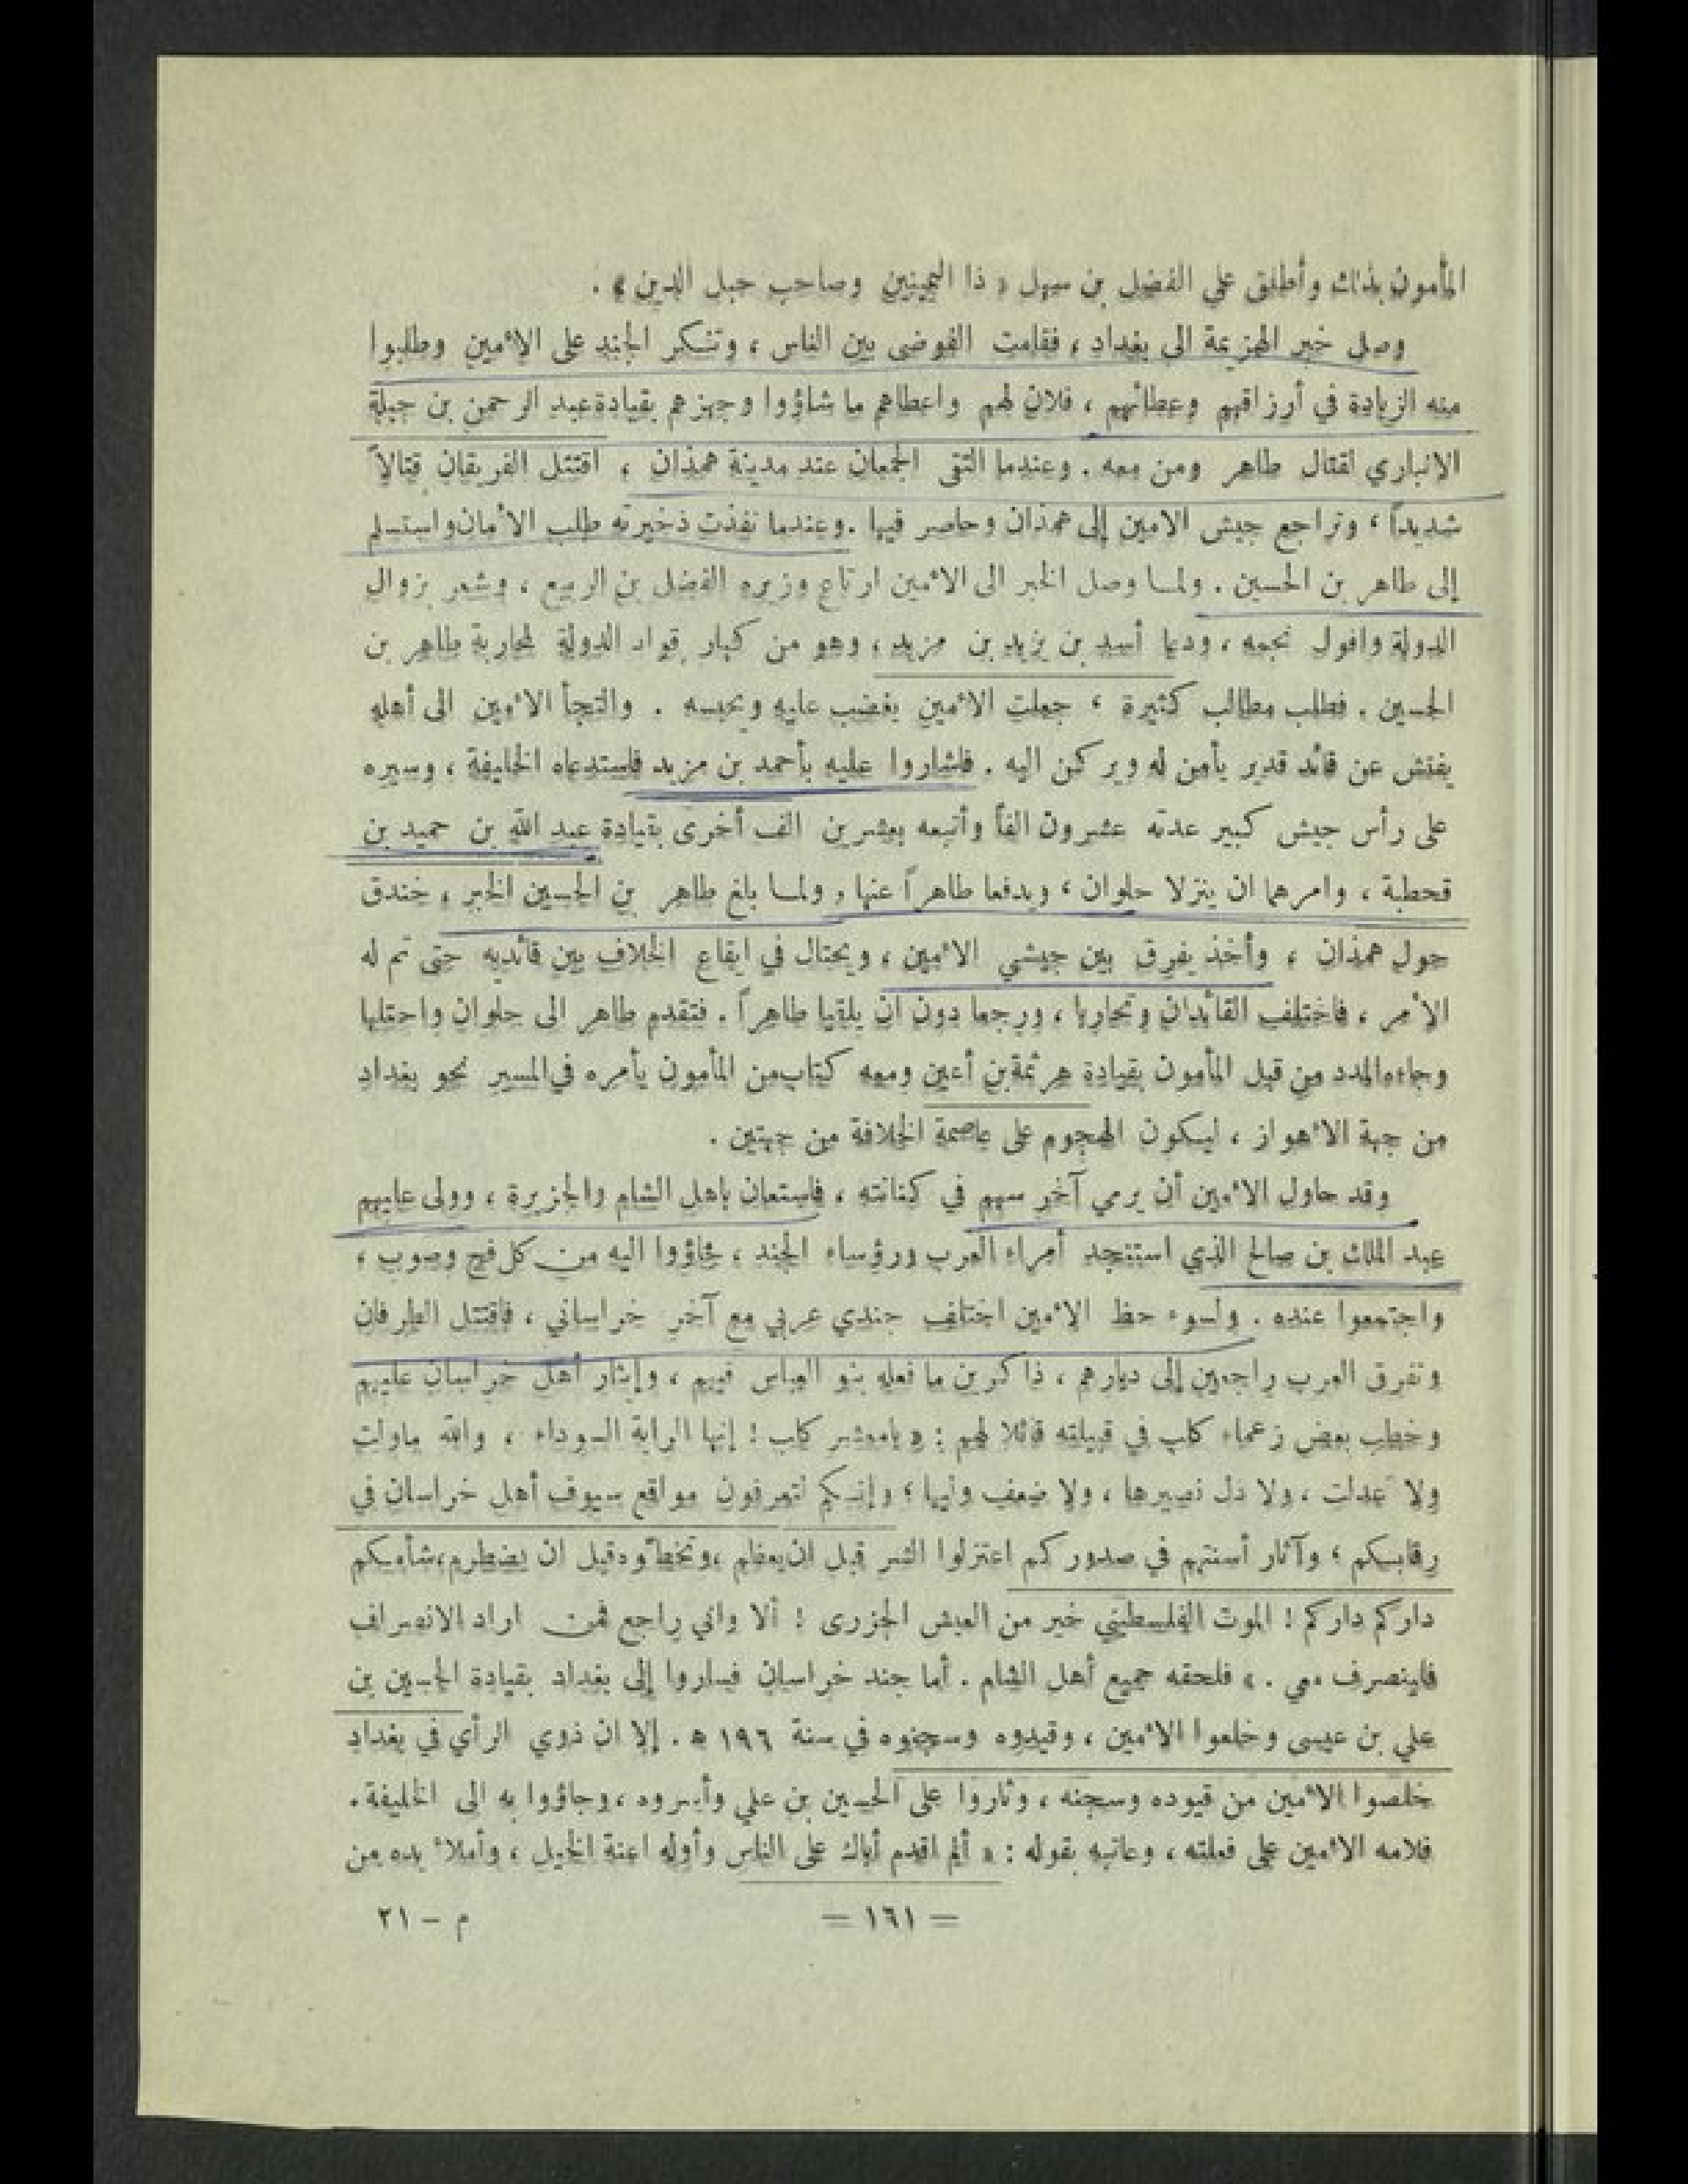 المأمون بذلك وأطلق على الفضل بن سهل « ذا اليمينين وصاحب حبل الدين » .
وصل خبر الهزيمة الى بغداد ، فقامت الفوضى بين الناس ، وتنكر الجند على الأمين وطلبوا
منه الزيادة في أرزاقهم وعطائهم ، فلان لهم واعطاهم ما شاؤوا وجهزهم بقيادة عبد الرحمن بن جبلة
الانباري لقتال طاهر ومن معه . وعندما التقى الجمعان عند مدينة همذان ، اقتتل الفريقان قتالاً
شديداً ، وتراجع جيش الامين إلى همذان وحاصر فيها . وعندما نفذت ذخيرته طلب الأمان واستسلم
إلى طاهر بن الحسين . ولما وصل الخبر الى الأمين ارتاع وزيره الفضل بن الربيع ، وشعر بزوال
الدولة وافول نجمه ، ودعا أسد بن يزيد بن مزيد ، وهو من كبار قواد الدولة لمحاربة طاهر بن
الحسين . فطلب مطالب كثيرة ، جعلت الأمين يغضب عليه ويحبسه . والتجأ الأمين الى أهله
يفتش عن قائد قدير يأمن له ويركن اليه . فاشاروا عليه بأحمد بن مزيد فاستدعاه الخليفة ، وسيره
على رأس جيش كبير عدته عشرون الفاً وأتبعه بعشرين الف أخرى بقيادة عبد الله بن حميد بن
قحطبة ، وامرهما ان ينزلا حلوان ، ويدفعا طاهراً عنها ، ولما بلغ طاهر بن الحسين الخبر ، خندق
حول همذان ، وأخذ يفرق بين جيشي الأمين ، ويحتال في ايقاع الخلاف بين قائديه حتى تم له
الأمر ، فاختلف القائدان وتحاربا ، ورجعا دون ان يلقيا طاهراً . فتقدم طاهر الى حلوان واحتلها
وجاءه المدد من قبل المأمون بقيادة هرثمة بن أعين ومعه كتاب من المأمون يأمره في المسير نحو بغداد
من جهة الأهواز ، ليكون الهجوم على عاصمة الخلافة من جهتين .
وقد حاول الأمين أن يرمي آخر سهم في كنانته ، فاستعان باهل الشام والجزيرة ، وولى عليهم
عبد الملك بن صالح الذي استنجد أمراء العرب ورؤساء الجند ، فجاؤوا اليه من كل فج وصوب ،
واجتمعوا عنده . ولسوء حظ الأمين اختلف جندي عربي مع آخر خراساني ، فاقتتل الطرفان
وتفرق العرب راجعين إلى ديارهم ، ذاكرين ما فعله بنو العباس فيهم ، وإيثار أهل خراسان عليهم
وخطب بعض زعماء كلب في قبيلته قائلا لهم : « يا معشر كلب ! إنها الراية السوداء ، والله ما ولت
ولا عدلت ، ولا ذل نصيرها ، ولا ضعف وليها ؛ وإنكم لتعرفون مواقع سيوف أهل خراسان في
رقابكم ؛ وآثار أسنتهم في صدوركم اعتزلوا الشر قبل ان يعظم ، وتخطوه قبل ان يضطرم ، شأمكم
داركم داركم ! الموت الفلسطيني خير من العيش الجزرى ! ألا واني راجع فمن اراد الانصراف
فلينصرف معي . » فلحقه جميع أهل الشام . أما جند خراسان فساروا إلى بغداد بقيادة الحسين بن
علي بن عيسى وخلعوا الأمين ، وقيدوه وسجنوه في سنة ١٩٦ ه . إلا ان ذوي الرأي في بغداد
خلصوا الأمين من قيوده وسجنه ، وثاروا على الحسين بن علي وأسروه ، وجاؤوا به الى الخليفة .
فلامه الأمين على فعلته ، وعاتبه بقوله : « ألم اقدم أباك على الناس وأوله اعنة الخيل ، وأملأ يده من
= ١٦١ =
م – ٢١